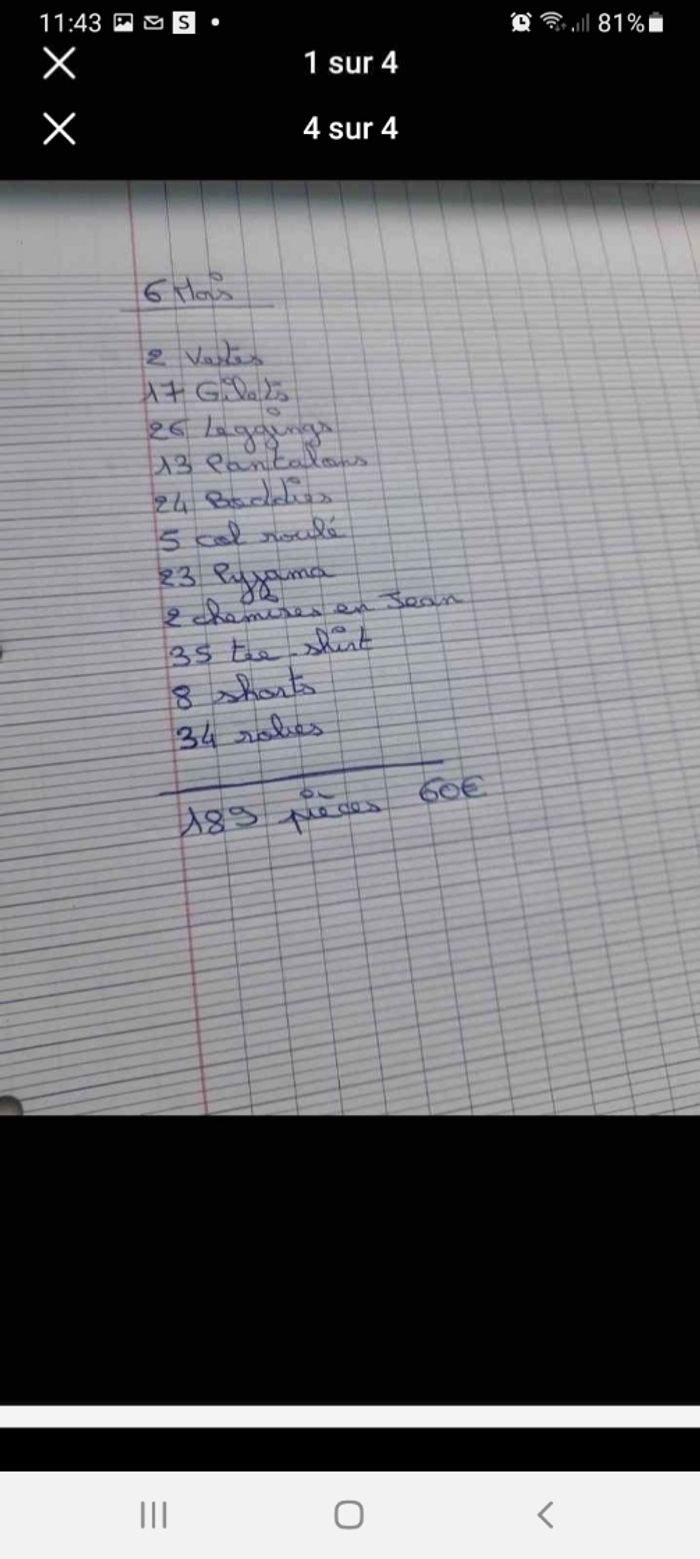 11:43 S 81%
1 sur 4
4 sur 4
6 Mois
2 Vestes
17 Gilets
26 Leggings
13 Pantalons
24 Boddies
5 col roulé
23 Pyjama
2 chemises en Jean
35 tee-shirt
8 shorts
34 robes
189 pièces 60€